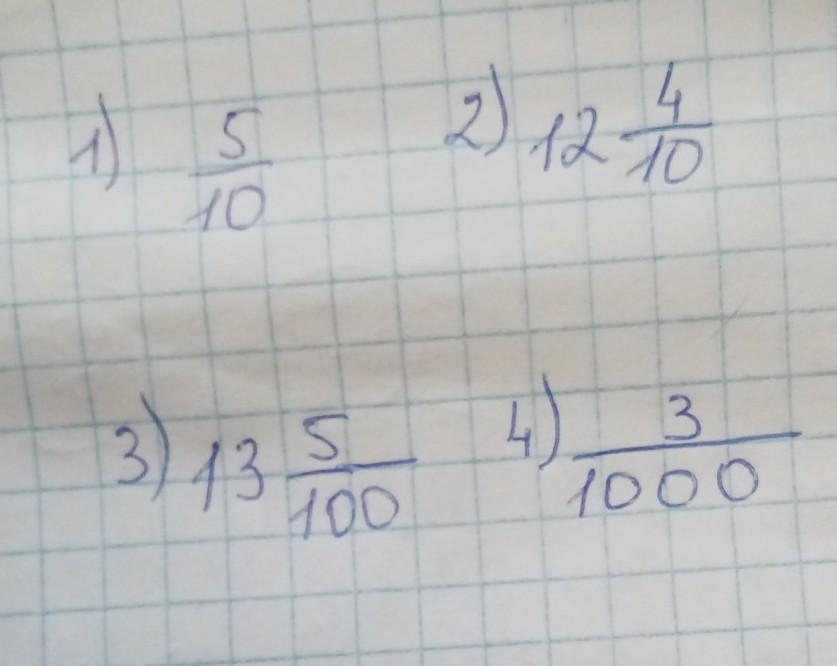 1) 5/10 2) 12 4/10
3) 13 5/100 4) 3/1000